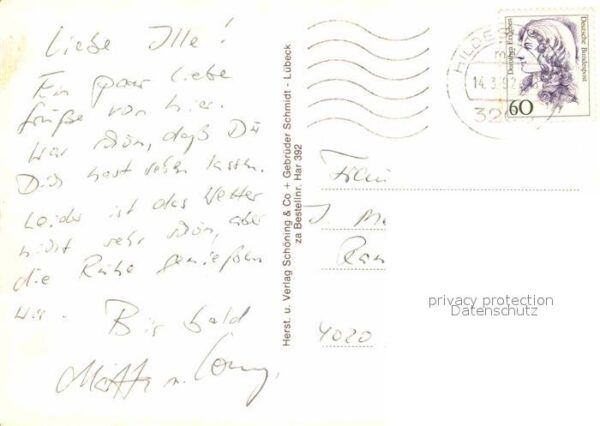 Liebe Ille!
Ein paar liebe
Grüße von hier.
War schön, daß Du
Dich hast sehen lassen.
Leider ist das Wetter
nicht sehr schön, aber
die Ruhe genießen
wir. Bis bald
Herst. u. Verlag Schöning & Co + Gebrüder Schmidt - Lübeck
za Bestellnr. Har 392
HILDESH
14.3.92
32
Dorothea Erxleben
Deutsche Bundespost
60
Frau
4020
privacy protection
Datenschutz